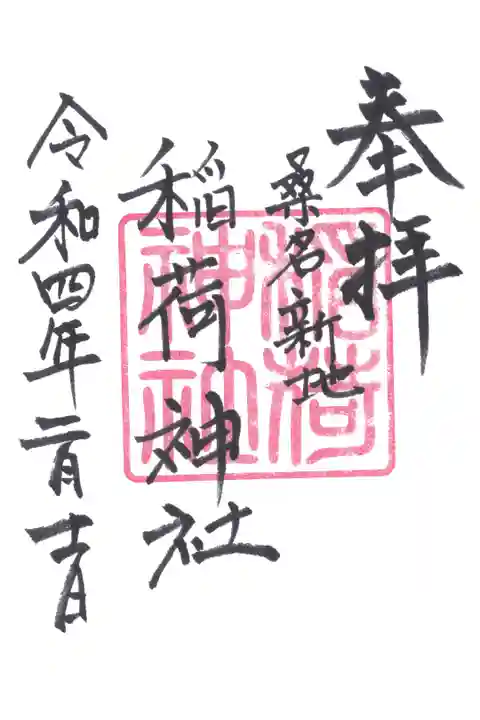 奉拝
桑名新地
稲荷神社
稲荷神社
令和四年二月十一日